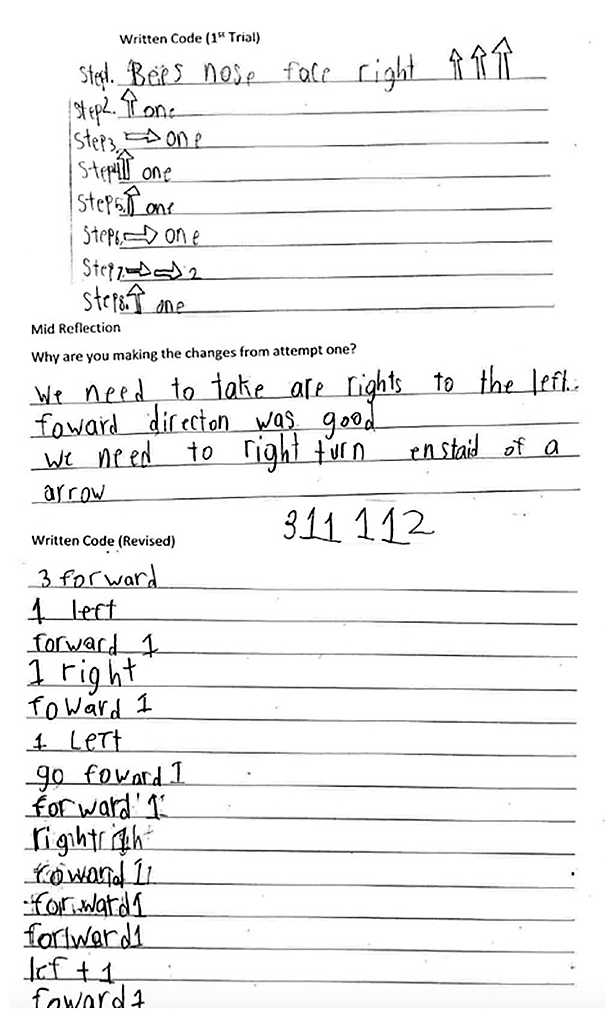 Written Code (1st Trial)
Step1. Bees nose face right ⇧⇧⇧
Step2. ⇧ one
Step3. ⇨ one
Step4. ⇧ one
Step5. ⇧ one
Step6. ⇨ one
Step7. ⇨⇨ 2
Step8. ⇧ one
Mid Reflection
Why are you making the changes from attempt one?
we need to take are rights to the left.
foward directon was good
we need to right turn enstaid of a
arrow
311 112
Written Code (Revised)
3 forward
1 left
forward 1
1 right
foward 1
1 Left
go foward 1
forward 1
foward 1
forward1
forlward1
lef + 1
foward 1